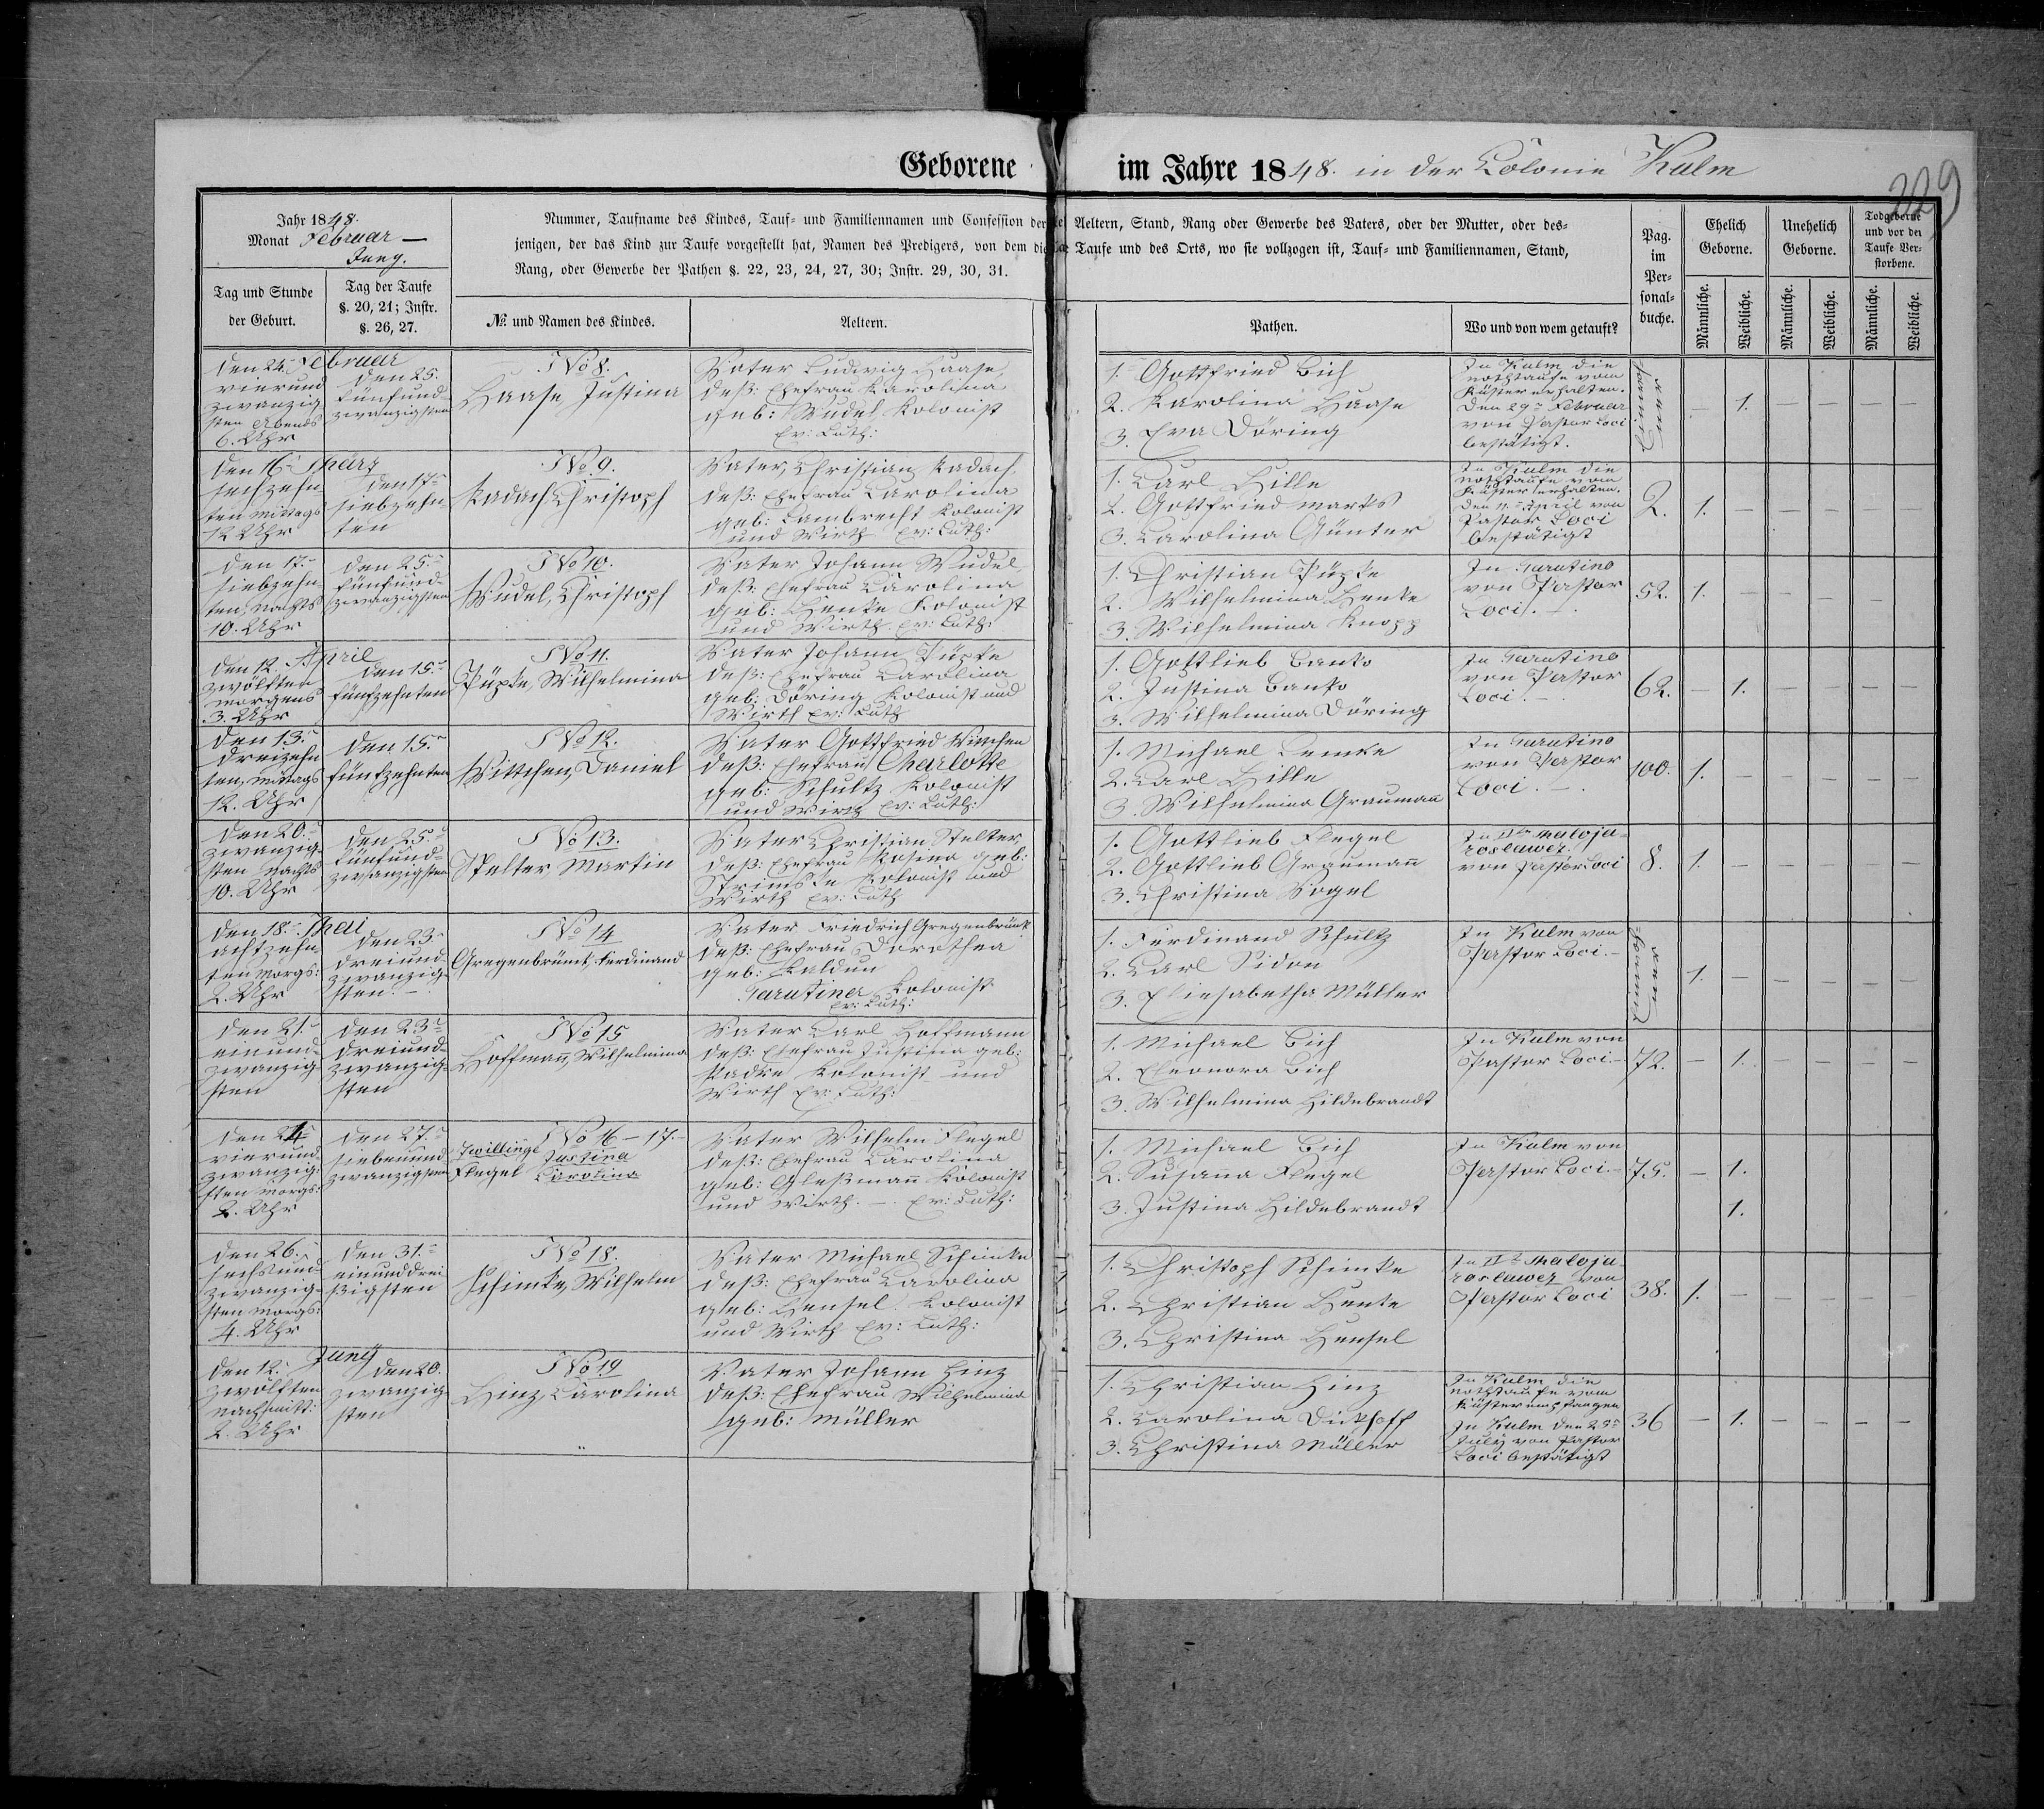 Geborene im Jahre 1848. in der Colonie Kulm
329
Jahr 1848.
Monat Februar —
Juny.
Nummer, Taufname des Kindes, Tauf- und Familiennamen und Confession der Aeltern, Stand, Rang oder Gewerbe des Vaters, oder der Mutter, oder des-
jenigen, der das Kind zur Taufe vorgestellt hat, Namen des Predigers, von dem die Taufe und des Orts, wo sie vollzogen ist, Tauf- und Familiennamen, Stand,
Rang, oder Gewerbe der Pathen §. 22, 23, 24, 27, 30; Instr. 29, 30, 31.
Tag und Stunde
der Geburt.
Tag der Taufe
§. 20, 21; Instr.
§. 26, 27.
№ und Namen des Kindes.
Aeltern.
Pathen.
Wo und von wem getauft?
Pag.
im
Per-
sonal-
buche.
Ehelich
Geborne.
Unehelich
Geborne.
Todgeborne
und vor der
Taufe Ver-
storbene.
Männliche.
Weibliche.
Männliche.
Weibliche.
Männliche.
Weibliche.
den 24. Februar
vierund
zwanzig
sten Abends
6. Uhr
den 25.
fünfund-
zwanzigsten
No 8.
Haase Justina
Vater Ludwig Haase,
deß: Ehefrau Karolina
geb: Wudel Kolonist
Ev: Luth:
1. Gottfried Bich
2. Karolina Haase
3. Eva Döring
In Kulm die
nothtaufe vom
Küster erhalten.
Den 29n Februar
von Pastor Loci
bestätigt.
— 1. — — — —
den 16n März
sechzehn
ten Mittags
12 Uhr
den 17n
siebzehn-
ten
No 9.
Radach Christoph
Vater, Christian Radach
deß: Ehefrau Carolina
geb: Lambrecht Kolonist
und Wirth Ev: Luth:
1. Carl Hille
2. Gottfried Marks
3. Carolina Günter
In Kulm die
nothtaufe vom
Küster erhalten.
Den 11n April von
Pastor Loci
bestätigt
2. 1. — — — — —
den 17.
siebzehn
ten, Nachts
10. Uhr
den 25.
fünfund-
zwanzigsten
No 10.
Wudel, Christoph
Vater Johann Wudel
deß: Ehefrau Carolina
geb: Henke Kolonist
und Wirth. Ev: Luth:
1. Christian Püpke
2. Wilhelmina Henke
3. Wilhelmina Knopp
In Tarutino
von Pastor
Loci. —.
52. 1. — — — — —
den 12. April
zwölften
morgens
3. Uhr
den 15n
fünfzehnten
No 11.
Püpke, Wilhelmina
Vater Johann Püpke
deß: Ehefrau Carolina
geb: Döring Kolonist und
Wirth Ev: Luth
1. Gottlieb Banko
2. Justina Banko
3. Wilhelmina Döring
In Tarutino
von Pastor
Loci. —
62. — 1. — — — —
den 13.
dreizehn
ten, Mittags
12. Uhr
den 15.
fünfzehnten
No 12.
Wittchen, Daniel
Vater Gottfried Wittchen
deß: Ehefrau Charlotte
geb: Schultz Kolonist
und Wirth Ev: Luth:
1. Michael Lemke
2. Carl Hille
3. Wilhelmina Graumann
In Tarutino
von Pastor
Loci. —.
100. 1. — — — — —
den 20.
zwanzig-
sten Nachts
10. Uhr
den 25.
fünfund-
zwanzigsten
No 13.
Stelter Martin
Vater Christian Stelter,
deß: Ehefrau Rosina geb:
Kolonist und
Wirth Ev: Luth
1. Gottlieb Flegel
2. Gottlieb Graumann
3. Christina Vogel
In IIten Maloja-
roslawez
von Pastor Loci
8. 1. — — — — —
den 18. Mai
achtzehn-
ten Morgs:
2. Uhr
den 23.
dreiund-
zwanzig-
sten. —
No 14
Gregenbrünk, Ferdinand
Vater Friedrich Gregenbrünk
deß: Ehefrau Dorothea
geb: Baldun
Tarutiner Kolonist
Ev: Luth:
1. Ferdinand Schultz
2. Carl Sidon
3. Eliesabetha Müller
In Kulm von
Pastor Loci. —
1. — — — — —
den 21.
einund-
zwanzig
sten
den 23n
dreiund-
zwanzig-
sten
No 15
Hoffmann, Wilhelmina
Vater Carl Hoffmann
deß: Ehefrau Justina geb:
Radke Kolonist und
Wirth Ev: Luth:
1. Michael Bich
2. Eleonora Bich
3. Wilhelmina Hildebrandt
In Kulm von
Pastor Loci —
72. — 1. — — — —
den 24n
vierund-
zwanzig-
sten Morgs:
2. Uhr
den 27.
siebenund-
zwanzigsten
No 16 – 17.
Zwillinge Justina
Flegel Carolina
Vater Wilhelm Flegel
deß: Ehefrau Carolina
geb: Gleßmann Kolonist
und Wirth. —. Ev: Luth:
1. Michael Bich
2. Susana Flegel
3. Justina Hildebrandt
In Kulm von
Pastor Loci. —
75. — 1. — — — —
1.
den 26.
sechsund-
zwanzig-
sten Morgs:
4. Uhr
den 31.
einunddrei
ßigsten
No 18.
Schimke, Wilhelm
Vater Michael Schimke
deß: Ehefrau Carolina
geb: Hensel Kolonist
und Wirth Ev: Luth:
1. Christoph Schimke
2. Christian Henke
3. Christina Hensel
In IIten Maloja-
roslawez von
Pastor Loci
38. 1. — — — — —
den 12. Juny
zwölften
Nachmitt:
2. Uhr
den 20.
zwanzig-
sten
No 19
Hinz Carolina
Vater Johann Hinz
deß: Ehefrau Wilhelmina
geb: Müller
1. Christian Hinz
2. Carolina Dickhoff
3. Christina Müller
In Kulm die
nothtaufe vom
Küster empfangen
In Kulm den 25n
July von Pastor
Loci bestätigt
36 — 1. — — — —